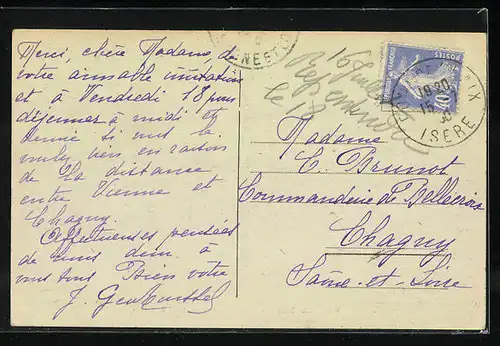 Merci, chère Madame, de
votre aimable invitation
et à Vendredi 18 pour
déjeuner à midi et
demie si vous le
voulez bien en raison
de la distance
entre Vienne et
Chagny.
Affectueuses pensées
de nous deux à
vous tous. Bien votre
16 Juillet
le 17
Madame
C. Brunot
Commanderie de Bellecroix
Chagny
Saône-et-Loire
POSTES
40
19 30
15
ISERE